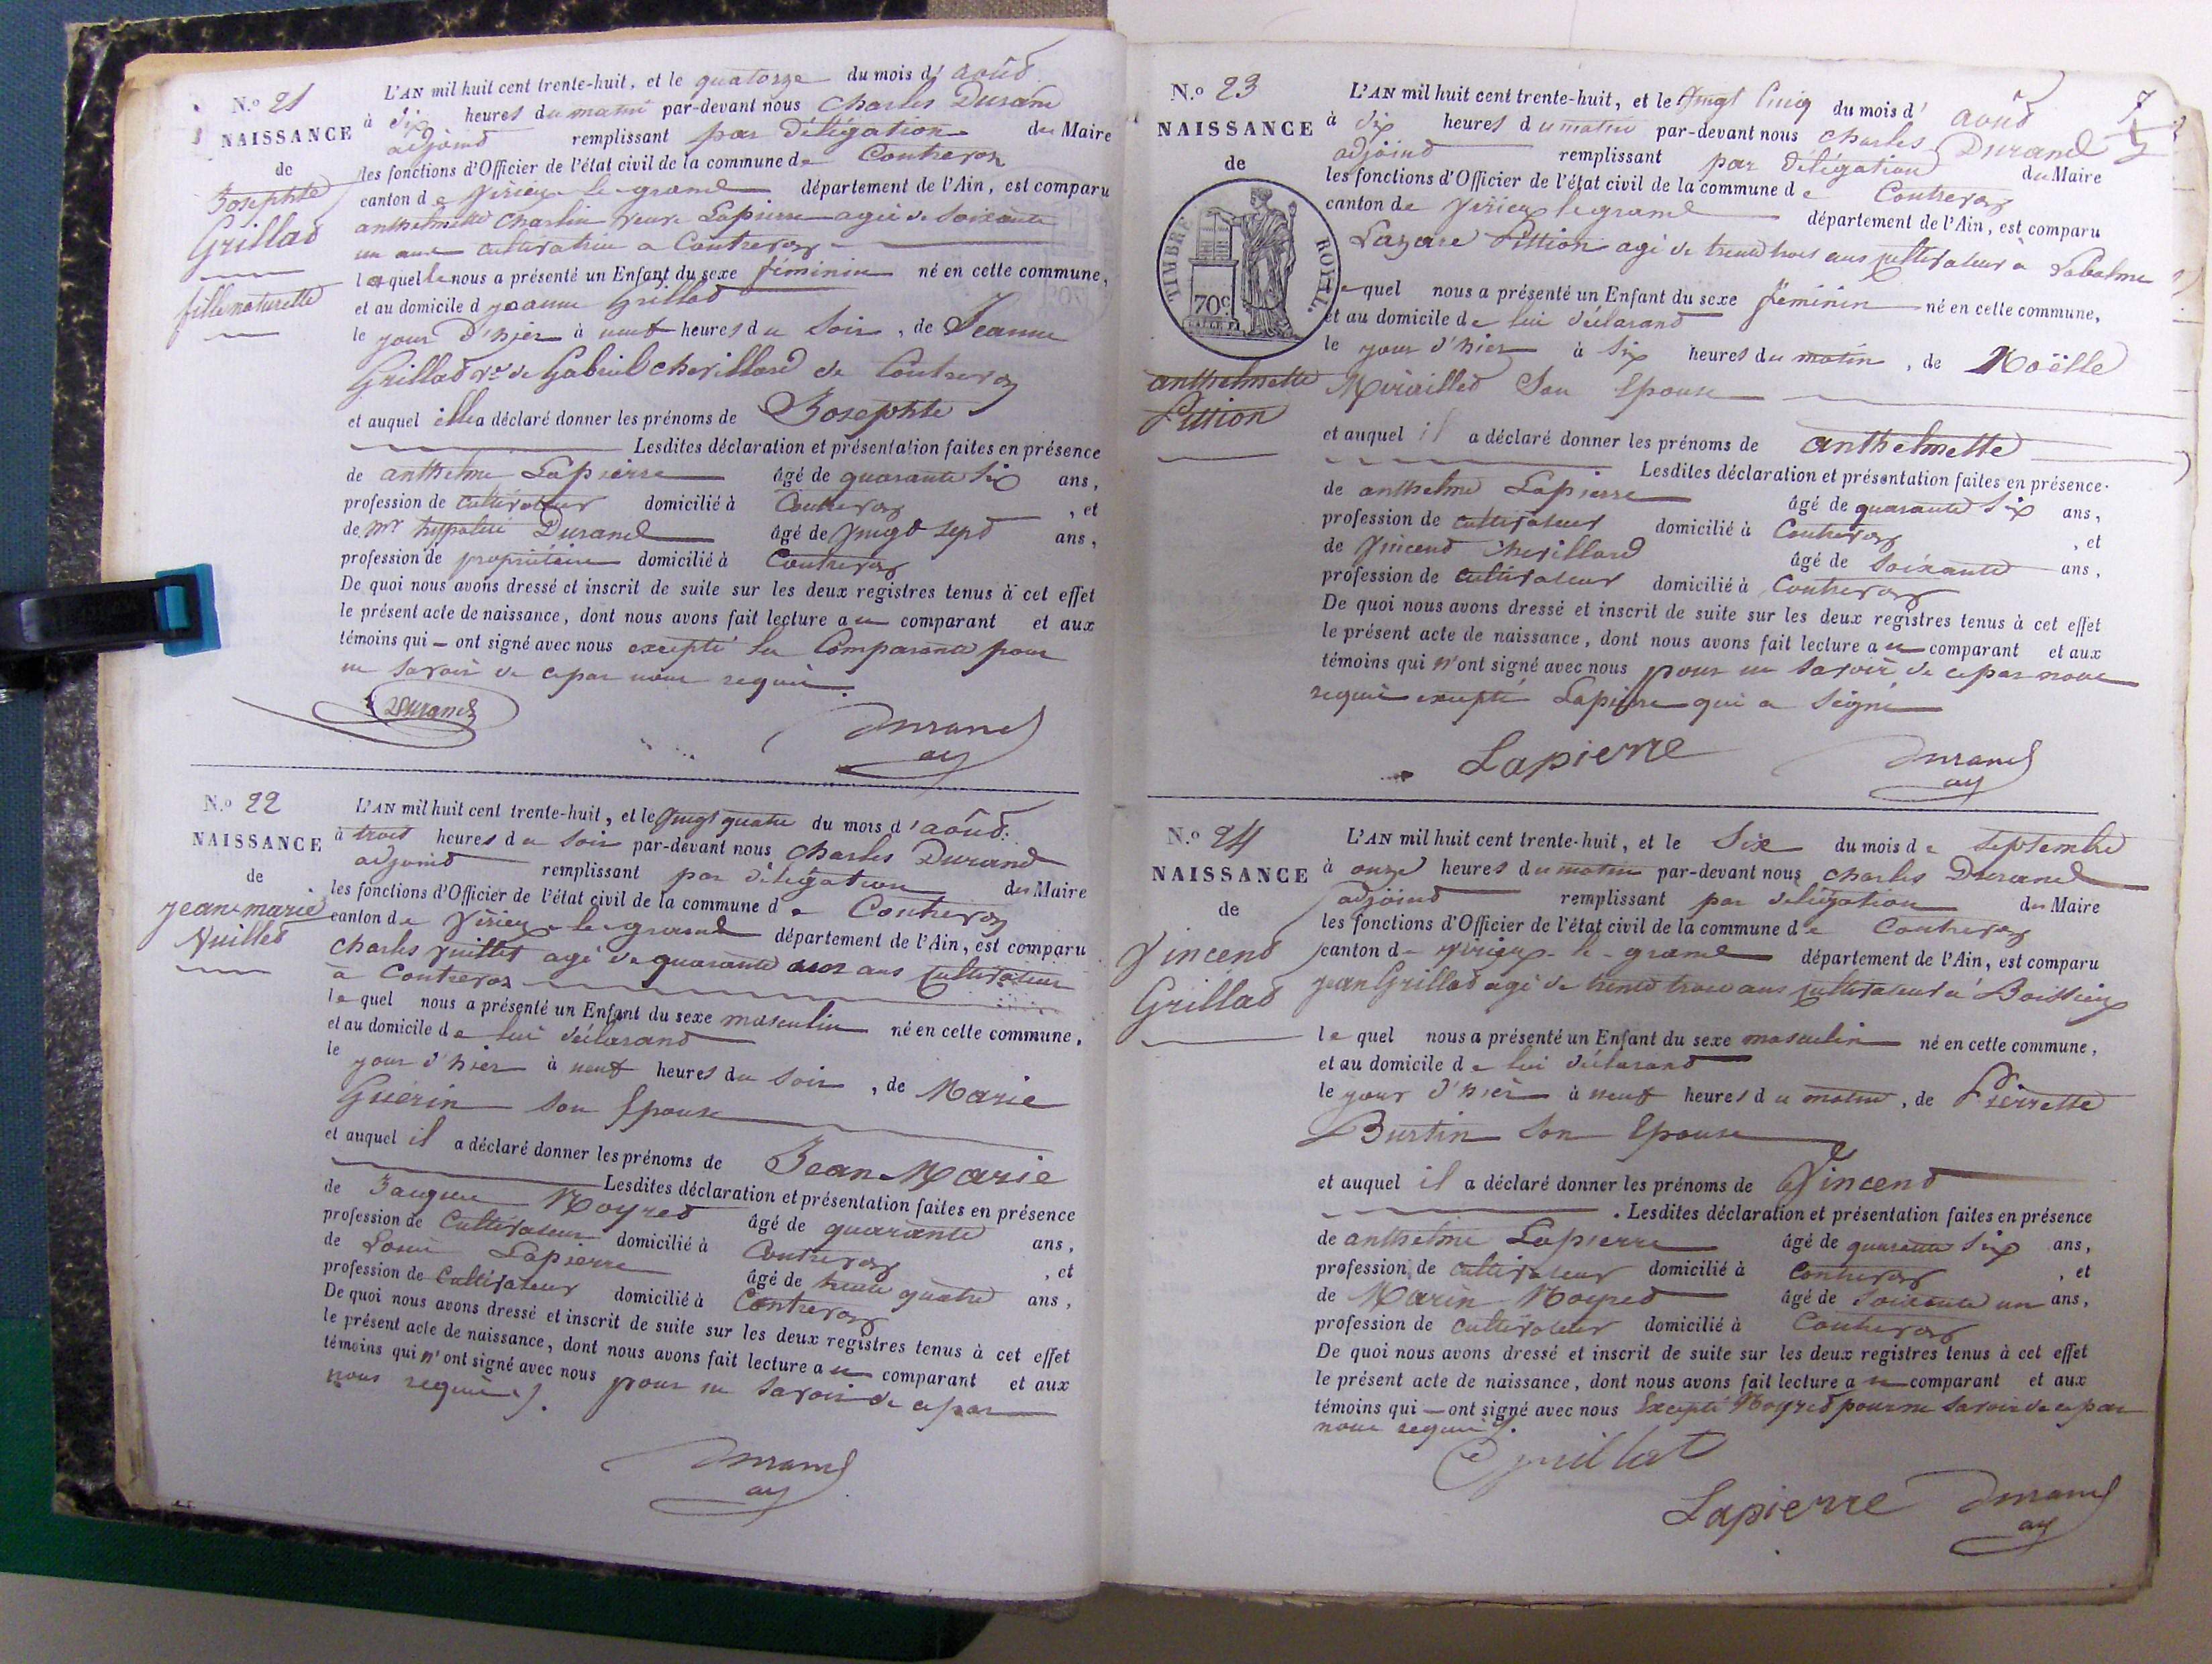 N.o 21
NAISSANCE
de
Josephte
Grillad
fille naturelle
L'AN mil huit cent trente-huit, et le quatorze du mois d' aoûd
à six heures du matin par-devant nous Charles Durand
adjoind remplissant par délégation du Maire
les fonctions d'Officier de l'état civil de la commune de Contrevoz
canton de Virieu le grand département de l'Ain, est comparu
anthelmette Charlin veuve Lapierre agée de soixante
un ans cultivatrice a Contrevoz
laquelle nous a présenté un Enfant du sexe féminin né en cette commune,
et au domicile d jeanne Grillad
le jour d'hier à neuf heures du soir, de Jeanne
Grillad ve de Gabriel Chevillard de Contrevoz
et auquel elle a déclaré donner les prénoms de Josephte
Lesdites déclaration et présentation faites en présence
de anthelme Lapierre âgé de quarante six ans,
profession de cultivateur domicilié à Contrevoz, et
de Mr hypolite Durand âgé de vingt sepd ans,
profession de propriétaire domicilié à Contrevoz
De quoi nous avons dressé et inscrit de suite sur les deux registres tenus à cet effet
le présent acte de naissance, dont nous avons fait lecture au comparant et aux
témoins qui — ont signé avec nous excepté la Comparante pour
ne savoir de ce par nous requise.
Durand
Durand
ay
N.o 22
NAISSANCE
de
jean-marie
Vuilled
L'AN mil huit cent trente-huit, et le vingt quatre du mois d'aoûd.
à trois heures du soir par-devant nous Charles Durand
adjoind remplissant par délégation du Maire
les fonctions d'Officier de l'état civil de la commune de Contrevoz
canton de Virieu-le-grand département de l'Ain, est comparu
Charles Vuillet agé de quarante ans cultivateur
à Contrevoz
lequel nous a présenté un Enfant du sexe masculin né en cette commune,
et au domicile de lui déclarand
le jour d'hier à neuf heures du soir, de Marie
Guérin son Epouse
et auquel il a déclaré donner les prénoms de Jean Marie
Lesdites déclaration et présentation faites en présence
de Jacques Noyred âgé de quarante ans,
profession de Cultivateur domicilié à Contrevoz, et
de Louis Lapierre âgé de trente quatre ans,
profession de Cultivateur domicilié à Contrevoz
De quoi nous avons dressé et inscrit de suite sur les deux registres tenus à cet effet
le présent acte de naissance, dont nous avons fait lecture au comparant et aux
témoins qui n'ont signé avec nous pour ne savoir de ce par
nous requis.
Durand
ay
N.o 23
NAISSANCE
de
TIMBRE ROYAL.
70c
anthelmette
Pittion
7
L'AN mil huit cent trente-huit, et le vingt cinq du mois d' aoûd
à six heures du matin par-devant nous Charles Durand
adjoind remplissant par délégation du Maire
les fonctions d'Officier de l'état civil de la commune de Contrevoz
canton de Virieu le grand département de l'Ain, est comparu
Lazare Pittion agé de trente trois ans cultivateur à Labalme
lequel nous a présenté un Enfant du sexe féminin né en cette commune,
et au domicile de lui déclarand
le jour d'hier à six heures du matin, de Noëlle
Mirailled Son Epouse
et auquel il a déclaré donner les prénoms de anthelmette
Lesdites déclaration et présentation faites en présence
de anthelme Lapierre âgé de quarante six ans,
profession de cultivateur domicilié à Contrevoz, et
de Vincend Chevillard âgé de soixante ans,
profession de cultivateur domicilié à Contrevoz
De quoi nous avons dressé et inscrit de suite sur les deux registres tenus à cet effet
le présent acte de naissance, dont nous avons fait lecture au comparant et aux
témoins qui n'ont signé avec nous pour ne savoir de ce par nous
requis excepté Lapierre qui a signé
Lapierre
Durand
ay
N.o 24
NAISSANCE
de
Vincend
Grillad
L'AN mil huit cent trente-huit, et le Six du mois de septembre
à onze heures du matin par-devant nous Charles Durand
adjoind remplissant par délégation du Maire
les fonctions d'Officier de l'état civil de la commune de Contrevoz
canton de Virieu-le-grand département de l'Ain, est comparu
jean Grillad agé de trente trois ans cultivateur à Boissieu
lequel nous a présenté un Enfant du sexe masculin né en cette commune,
et au domicile de lui déclarand
le jour d'hier à neuf heures du matin, de Pierrette
Burtin son Epouse
et auquel il a déclaré donner les prénoms de Vincend
Lesdites déclaration et présentation faites en présence
de anthelme Lapierre âgé de quarante six ans,
profession de cultivateur domicilié à Contrevoz, et
de Marin Noyred âgé de soixante un ans,
profession de cultivateur domicilié à Contrevoz
De quoi nous avons dressé et inscrit de suite sur les deux registres tenus à cet effet
le présent acte de naissance, dont nous avons fait lecture au comparant et aux
témoins qui — ont signé avec nous Excepté Noyred pour ne savoir de ce par
nous requis.
Grillat
Lapierre
Durand
ay